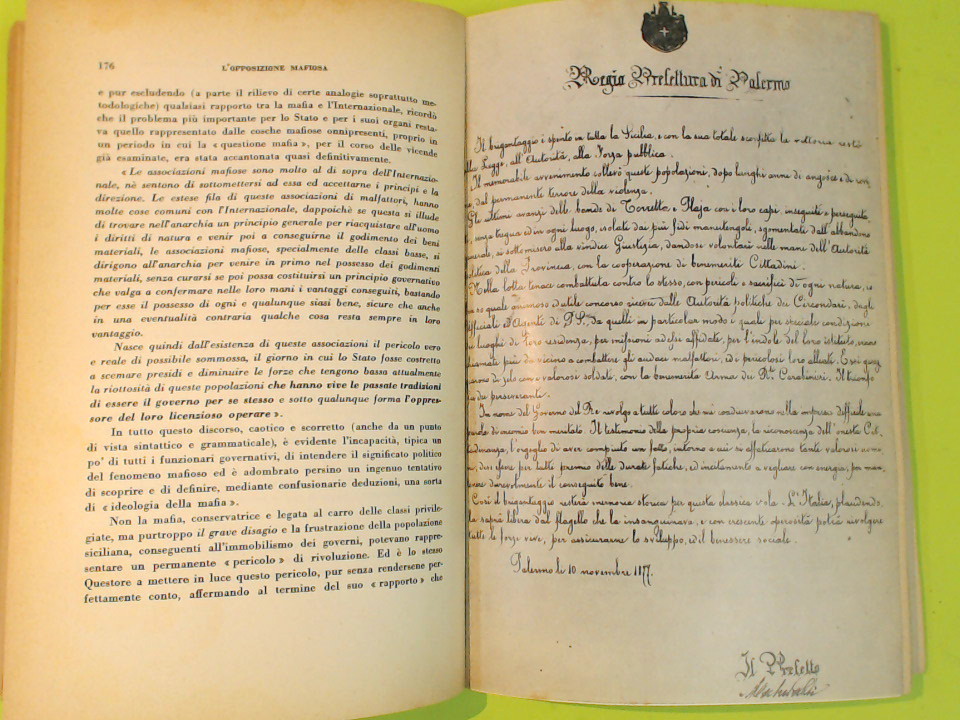 176
L'OPPOSIZIONE MAFIOSA
e pur escludendo (a parte il rilievo di certe analogie soprattutto me-
todologiche) qualsiasi rapporto tra la mafia e l'Internazionale, ricordò
che il problema più importante per lo Stato e per i suoi organi resta-
va quello rappresentato dalle cosche mafiose onnipresenti, proprio in
un periodo in cui la « questione mafia », per il corso delle vicende
già esaminate, era stata accantonata quasi definitivamente.
« Le associazioni mafiose sono molto al di sopra dell'Internazio-
nale, nè sentono di sottomettersi ad essa ed accettarne i principi e la
direzione. Le estese fila di queste associazioni di malfattori, hanno
molte cose comuni con l'Internazionale, dappoichè se questa si illude
di trovare nell'anarchia un principio generale per riacquistare all'uomo
i diritti di natura e venir poi a conseguirne il godimento dei beni
materiali, le associazioni mafiose, specialmente delle classi basse, si
dirigono all'anarchia per venire in primo nel possesso dei godimenti
materiali, senza curarsi se poi possa costituirsi un principio governativo
che valga a confermare nelle loro mani i vantaggi conseguiti, bastando
per esse il possesso di ogni e qualunque siasi bene, sicure che anche
in una eventualità contraria qualche cosa resta sempre in loro
vantaggio.
Nasce quindi dall'esistenza di queste associazioni il pericolo vero
e reale di possibile sommossa, il giorno in cui lo Stato fosse costretto
a scemare presidi e diminuire le forze che tengono bassa attualmente
la riottosità di queste popolazioni che hanno vive le passate tradizioni
di essere il governo per se stesso e sotto qualunque forma l'oppres-
sore del loro licenzioso operare ».
In tutto questo discorso, caotico e scorretto (anche da un punto
di vista sintattico e grammaticale), è evidente l'incapacità, tipica un
po' di tutti i funzionari governativi, di intendere il significato politico
del fenomeno mafioso ed è adombrato persino un ingenuo tentativo
di scoprire e di definire, mediante confusionarie deduzioni, una sorta
di « ideologia della mafia ».
Non la mafia, conservatrice e legata al carro delle classi privile-
giate, ma purtroppo il grave disagio e la frustrazione della popolazione
siciliana, conseguenti all'immobilismo dei governi, potevano rappre-
sentare un permanente « pericolo » di rivoluzione. Ed è lo stesso
Questore a mettere in luce questo pericolo, pur senza rendersene per-
fettamente conto, affermando al termine del suo « rapporto » che
Regia Prefettura di Palermo
Il brigantaggio è spento in tutta la Sicilia, e con la sua totale sconfitta la vittoria restò
alla Legge, all'Autorità, alla Forza pubblica.
Il memorabile avvenimento sollevò queste popolazioni, dopo lunghi anni di angoscie e di
dal permanente terrore della violenza.
Gli ultimi avanzi delle bande di Torretta e Plaja con i loro capi inseguiti e perseguita
senza tregua ed in ogni luogo, isolati dai più fidi manutengoli, sgomentati dall'abbandono
si sottomisero alla vindice Giustizia, dandosi volontarii nelle mani dell'Autorità
politica della Provincia, con la cooperazione di benemeriti Cittadini.
Nella lotta tenace combattuta contro lo stesso, con pericoli e sacrifici di ogni natura, io
so quale animoso ed utile concorso ricevei dalle Autorità politiche dei Circondari, dagli
Ufficiali ed Agenti di P.S., da quelli in particolar modo i quali per speciale condizione
di luoghi di loro residenza, per missioni ad essi affidate, per l'indole del loro istituto,
più da vicino a combattere gli audaci malfattori, ed i pericolosi loro alleati. Essi gareg
giarono di zelo con i valorosi soldati, con la benemerita Arma dei Rli Carabinieri. Il trionfo
dei perseveranti.
In nome del Governo del Re rivolgo a tutti coloro che mi coadiuvarono nella impresa difficile una
parola di encomio ben meritato. Il testimonio della propria coscienza, la riconoscenza dell'onesta Cit
tadinanza, l'orgoglio di aver compiuto un fatto, intorno a cui si affaticarono tante valorosi uomi
ni, dev'essere per tutti premio delle durate fatiche, ed incitamento a vegliare con energia, per man
tenere durevolmente il conseguito bene.
Così il brigantaggio resterà memoria storica per questa classica Isola. L'Italia, plaudendo,
la saprà libera dal flagello che la insanguinava, e con crescente operosità potrà rivolgere
tutte le forze vive, per assicurarne lo sviluppo, ed il benessere sociale.
Palermo li 10 novembre 1877.
Il Prefetto